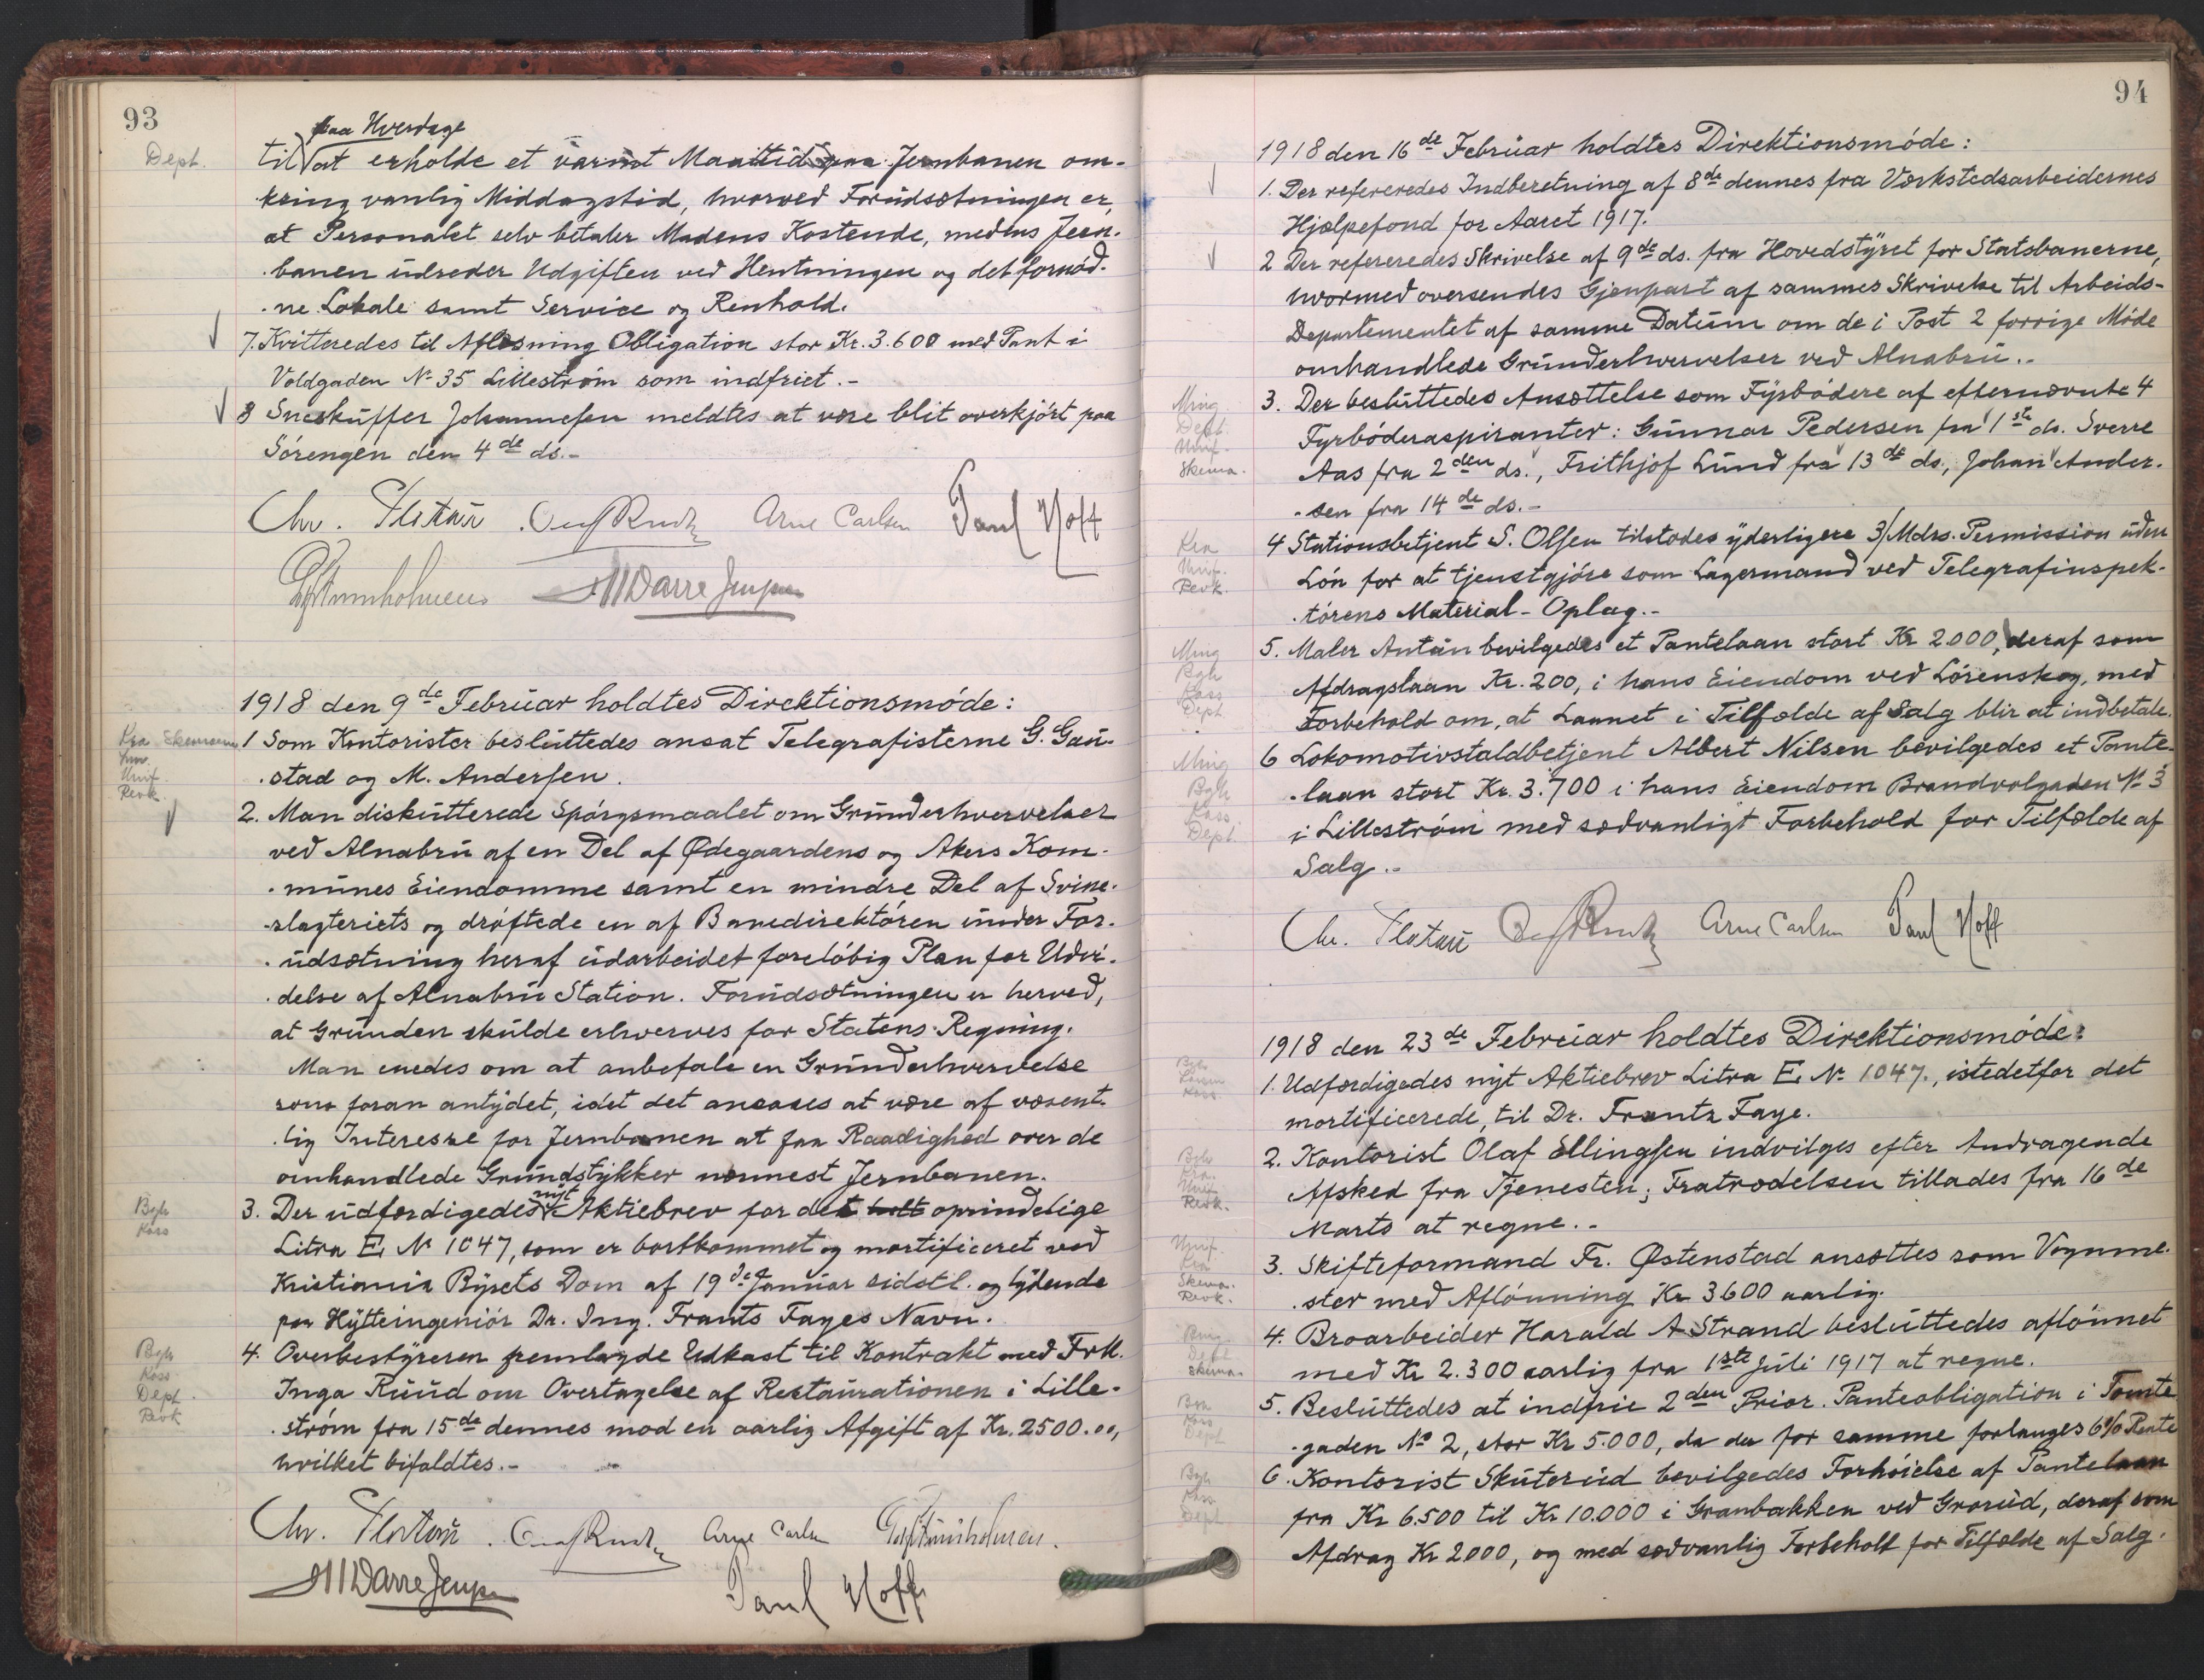 93
paa Hverdage
Dept.
til at erholde et varmt Maaltid paa Jernbanen om-
kring vanlig Middagstid, hvorved Forudsætningen er,
at Personalet selv betaler Madens Kostende, medens Jern-
banen udreder Udgiften ved Hentningen og det fornød-
ne Lokale samt Service og Renhold.
7. Kvitteredes til Aflæsning Obligation stor Kr. 3.600 med Pant i
Voldgaden No 35 Lilleström som indfriet.-
8 Sneskuffer Johannesen meldtes at være blit overkjørt paa
Sörengen den 4de ds.-
Chr. Platou Arne Carlsen Paul Hoff
1918 den 9de Februar holdtes Direktionsmöde:
Kra Skema
Unif.
Revk.
1 Som Kontorister besluttedes ansat Telegrafisterne G. Gau-
stad og M. Andersen.
2. Man diskutterede Spörgsmaalet om Grunderhvervelser
ved Alnabru af en Del af Ødegaardens og Akers Kom-
munes Eiendomme samt en mindre Del af Svine-
slagteriets og dröftede en af Banedirektören under For-
udsætning heraf udarbeidet forelöbig Plan for Udvi-
delse af Alnabru Station. Forudsætningen er herved,
at Grunden skulde erhverves for Statens Regning.
Man enedes om at anbefale en Grunderhvervelse
som foran antydet, idet det ansaaes at være af væsent-
lig Interesse for Jernbanen at faa Raadighed over de
omhandlede Grundstykker nærmest Jernbanen.
Bgh
Kass
nyt
3. Der udfærdigedes Aktiebrev for det helt oprindelige
Litra E No 1047, som er bortkommet og mortificeret ved
Kristiania Byrets Dom af 19de Januar sidstl. og lydende
paa Hytteingeniör Dr. Ing. Frants Fayes Navn.
Bgh
Kass
Dept.
Revk
4. Overbestyreren fremlagde Udkast til Kontrakt med Frk.
Inga Ruud om Overtagelse af Restaurationen i Lille-
ström fra 15de dennes mod en aarlig Afgift af Kr. 2500.00,
hvilket bifaldtes.-
Chr. Platou. Arne Carlsen
Paul Hoff
94
1918 den 16de Februar holdtes Direktionsmöde:
1. Der refereredes Indberetning af 8de dennes fra Værkstedsarbeidernes
Hjælpefond for Aaret 1917.
2 Der refereredes Skrivelse af 9de ds. fra Hovedstyret for Statsbanerne,
hvormed oversendes Gjenpart af sammes Skrivelse til Arbeids-
Departementet af samme Datum om de i Post 2 forrige Möde
omhandlede Grunderhvervelser ved Alnabru.-
Ming
Dept.
Unif.
Skema.
3. Der besluttedes Ansættelse som Fyrbödere af efternævnte 4
Fyrböderaspiranter: Gunnar Pedersen fra 1ste ds. Sverre
Aas fra 2den ds., Frithjof Lund fra 13de ds., Johan Ander-
sen fra 14de ds.-
Kra
Unif.
Revk.
4 Stationsbetjent S. Olsen tilstodes yderligere 3/Mdrs. Permission uden
Lön for at tjenstgjöre som Lagermand ved Telegrafinspek-
törens Material-Oplag.-
Ming
Bgh
Kass
Dept
5. Maler Antün bevilgedes et Pantelaan stort Kr 2000, deraf som
Afdragslaan Kr. 200, i hans Eiendom ved Lörenskog, med
Forbehold om, at Laanet i Tilfælde af Salg blir at indbetale.
Ming
Bgh
Kass
Dept.
6 Lokomotivstaldbetjent Albert Nilsen bevilgedes et Pante-
laan stort Kr. 3.700 i hans Eiendom Brandvolgaden No 3
i Lilleström med sædvanligt Forbehold for Tilfælde af
Salg.-
Chr. Platou Arne Carlsen Paul Hoff
1918 den 23de Februar holdtes Direktionsmöde:
Bgh
Kass
1. Udfærdigedes nyt Aktiebrev Litra E. No 1047., istedetfor det
mortificerede, til Dr. Frantz Faye.
Bgh
Kra
Unif.
Revk.
2. Kontorist Olaf Ellingsen indvilges efter Andragende
Afsked fra Tjenesten; Fratrædelsen tillades fra 16de
Marts at regne.-
Unif.
Kra
Skema.
Revk.
3. Skifteformand Fr. Østenstad ansættes som Vognme-
ster med Aflönning Kr 3600 aarlig.
Dept
Skema.
4. Broarbeider Harald A Strand besluttedes aflönnet
med Kr 2.300 aarlig fra 1ste Juli 1917 at regne.
Kass
Dept
5. Besluttedes at indfrie 2den Prior. Panteobligation i Tomte
gaden No 2, stor Kr 5.000, da der for samme forlanges 6% Rente
Bgh
Kass.
Dept
6. Kontorist Skuterud bevilgedes Forhöielse af Pantelaan
fra Kr 6.500 til Kr 10.000 i Granbakken ved Grorud, deraf som
Afdrag Kr 2000, og med sædvanlig Forbehold for Tilfælde af Salg.